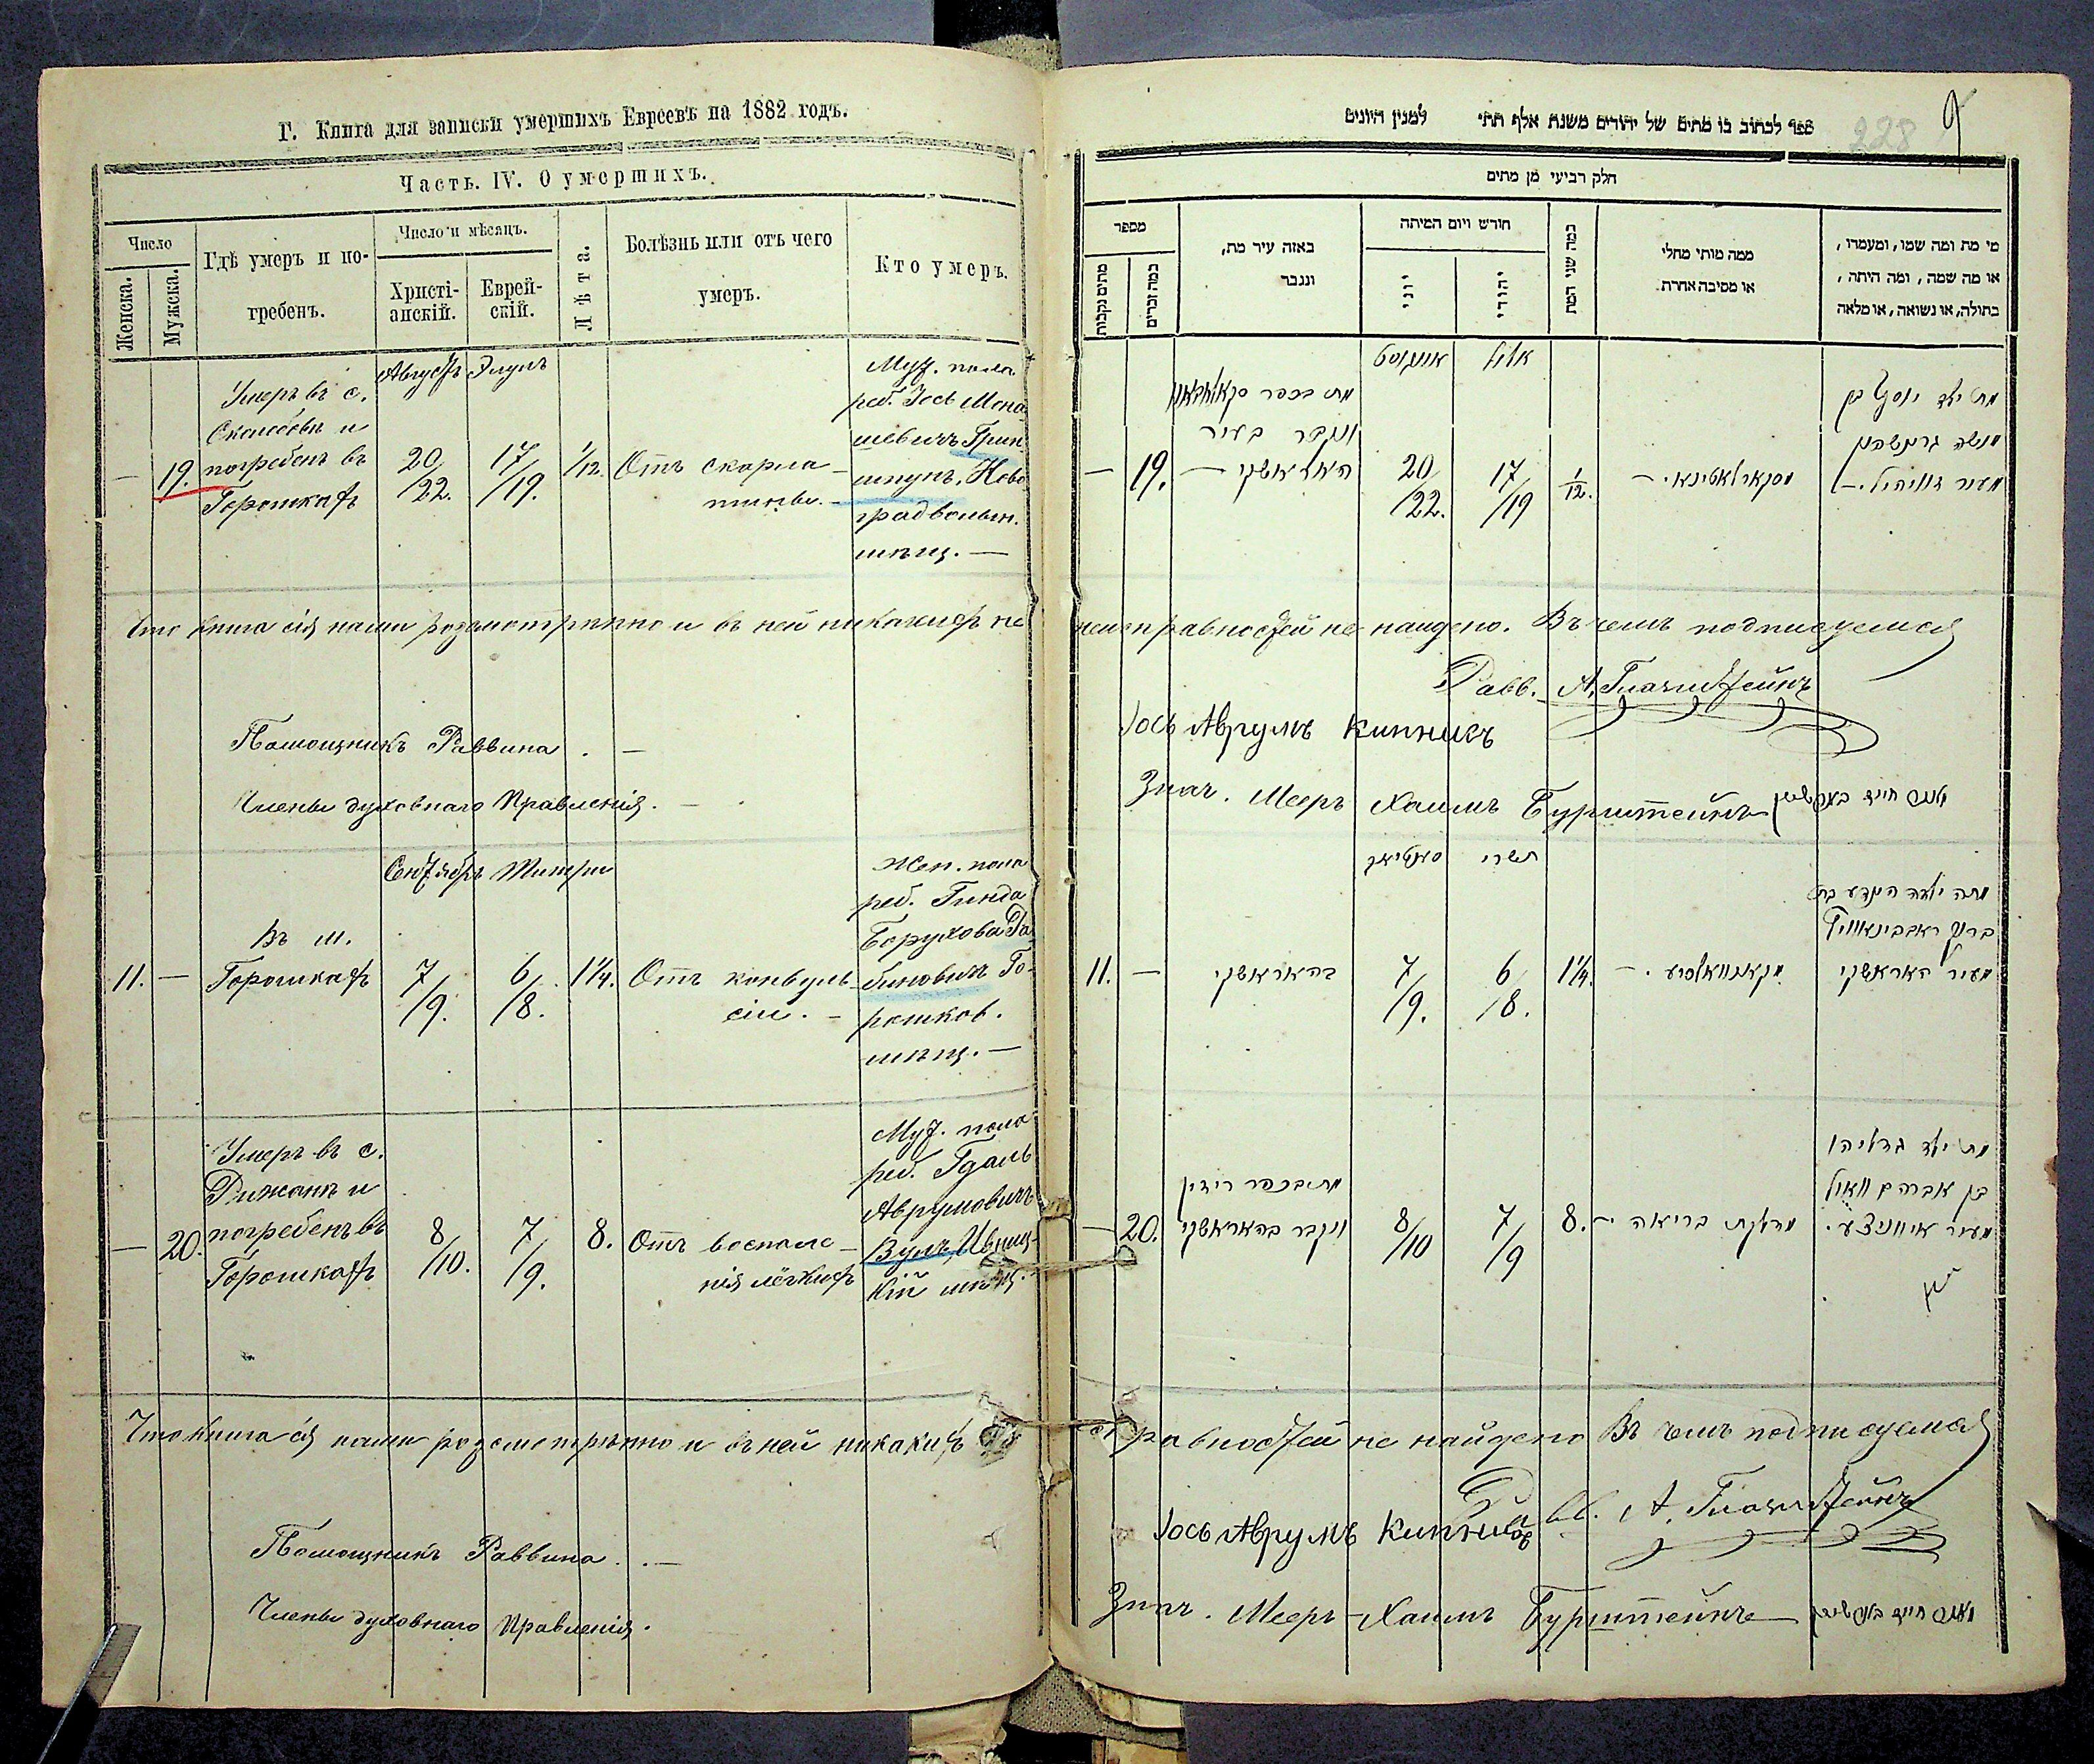 Г. Книга для записки умершихъ Евреевъ на 1882 годъ.
Часть. IV. О умершихъ.
Число
Женска.
Мужска.
Гдѣ умеръ и по-
гребенъ.
Число и мѣсяцъ.
Христі-
анскій.
Еврей-
скій.
Лѣта.
Болѣзнь или отъ чего
умеръ.
Кто умеръ.
Августъ Элулъ
— 19.
Умеръ въ с.
погребенъ въ
Горошкахъ
20/22.
17/19.
1/12.
Отъ скарла-
тины. —
Муж. пола
реб. Іось Мона
шевичъ Грин
шпунъ, Ново
градволын.
мѣщ. —
Что книга сія нами розсмотрѣнно и въ ней никакихъ не
Помощникъ Раввина . —
Члены духовнаго Правленія. —
Сентябрь Тишри
11. —
Въ м.
Горошкахъ
7/9.
6/8.
1¼.
Отъ конвуль-
сіи. —
Жен. пола
реб. Гинда
Борухова Ра
биновичъ Го-
рошков.
мѣщ. —
— 20.
Умеръ въ с.
Рижанѣ и
погребенъ въ
Горошкахъ
8/10.
7/9.
8.
Отъ воспале-
нія лёгкихъ
Муж. пола
реб. Гдаль
Аврумовичъ
Вулъ, Ивниц-
кій мѣщ.
Что книга сія нами розсмотрѣнно и въ ней никакихъ
Помощникъ Раввина . . —
Члены духовнаго Правленія.
228
9
ספר לכתוב בו מתים של יהודים משנת אלף תתי למנין היונים
חלק רביעי מן מתים
מספר
מתים נקבות
כמה זכרים
באזה עיר מת,
ונגבר
חורש ויום המיתה
יוני
יהודי
כמה שני המת
ממה מותי מחלי
או מסיבה אחרת
מי מת ומה שמו, ומעמדו,
או מה שמה, ומה היתה,
בתולה, או נשואה, או מלאה
אויגוסט אלול
— 19.
ונקבר בעיר
האראשקי —
20/22.
17/19
1/12.
מסקארלאטינא. —
מת ילד יוסף בן
מנשה גרינשפון
неисправностей не найдено. Въ чемъ подписуемся
Равв. А. Глазштейнъ
Іось Аврумъ Кипнисъ
Знач. Мееръ Хаимъ Бурштейнъ
תשרי
11. —
בהאראשקי
7/9.
6/8.
1¼.
מתה ילדה הינדע בת
ברוך ראבבינאוויץ
מעיר האראשקי
— 20.
ונקבר בהאראשקי
8/10
7/9
8. —
מדלקת בריאה
מת ילד גדליהו
בן אברהם וואול
מעיר איווניצע.
равностей не найдено Въ чемъ подписуемся
Равв. А. Глазштейнъ
Іось Аврумъ Кипнисъ
Знач. Мееръ-Хаимъ Бурштейнъ